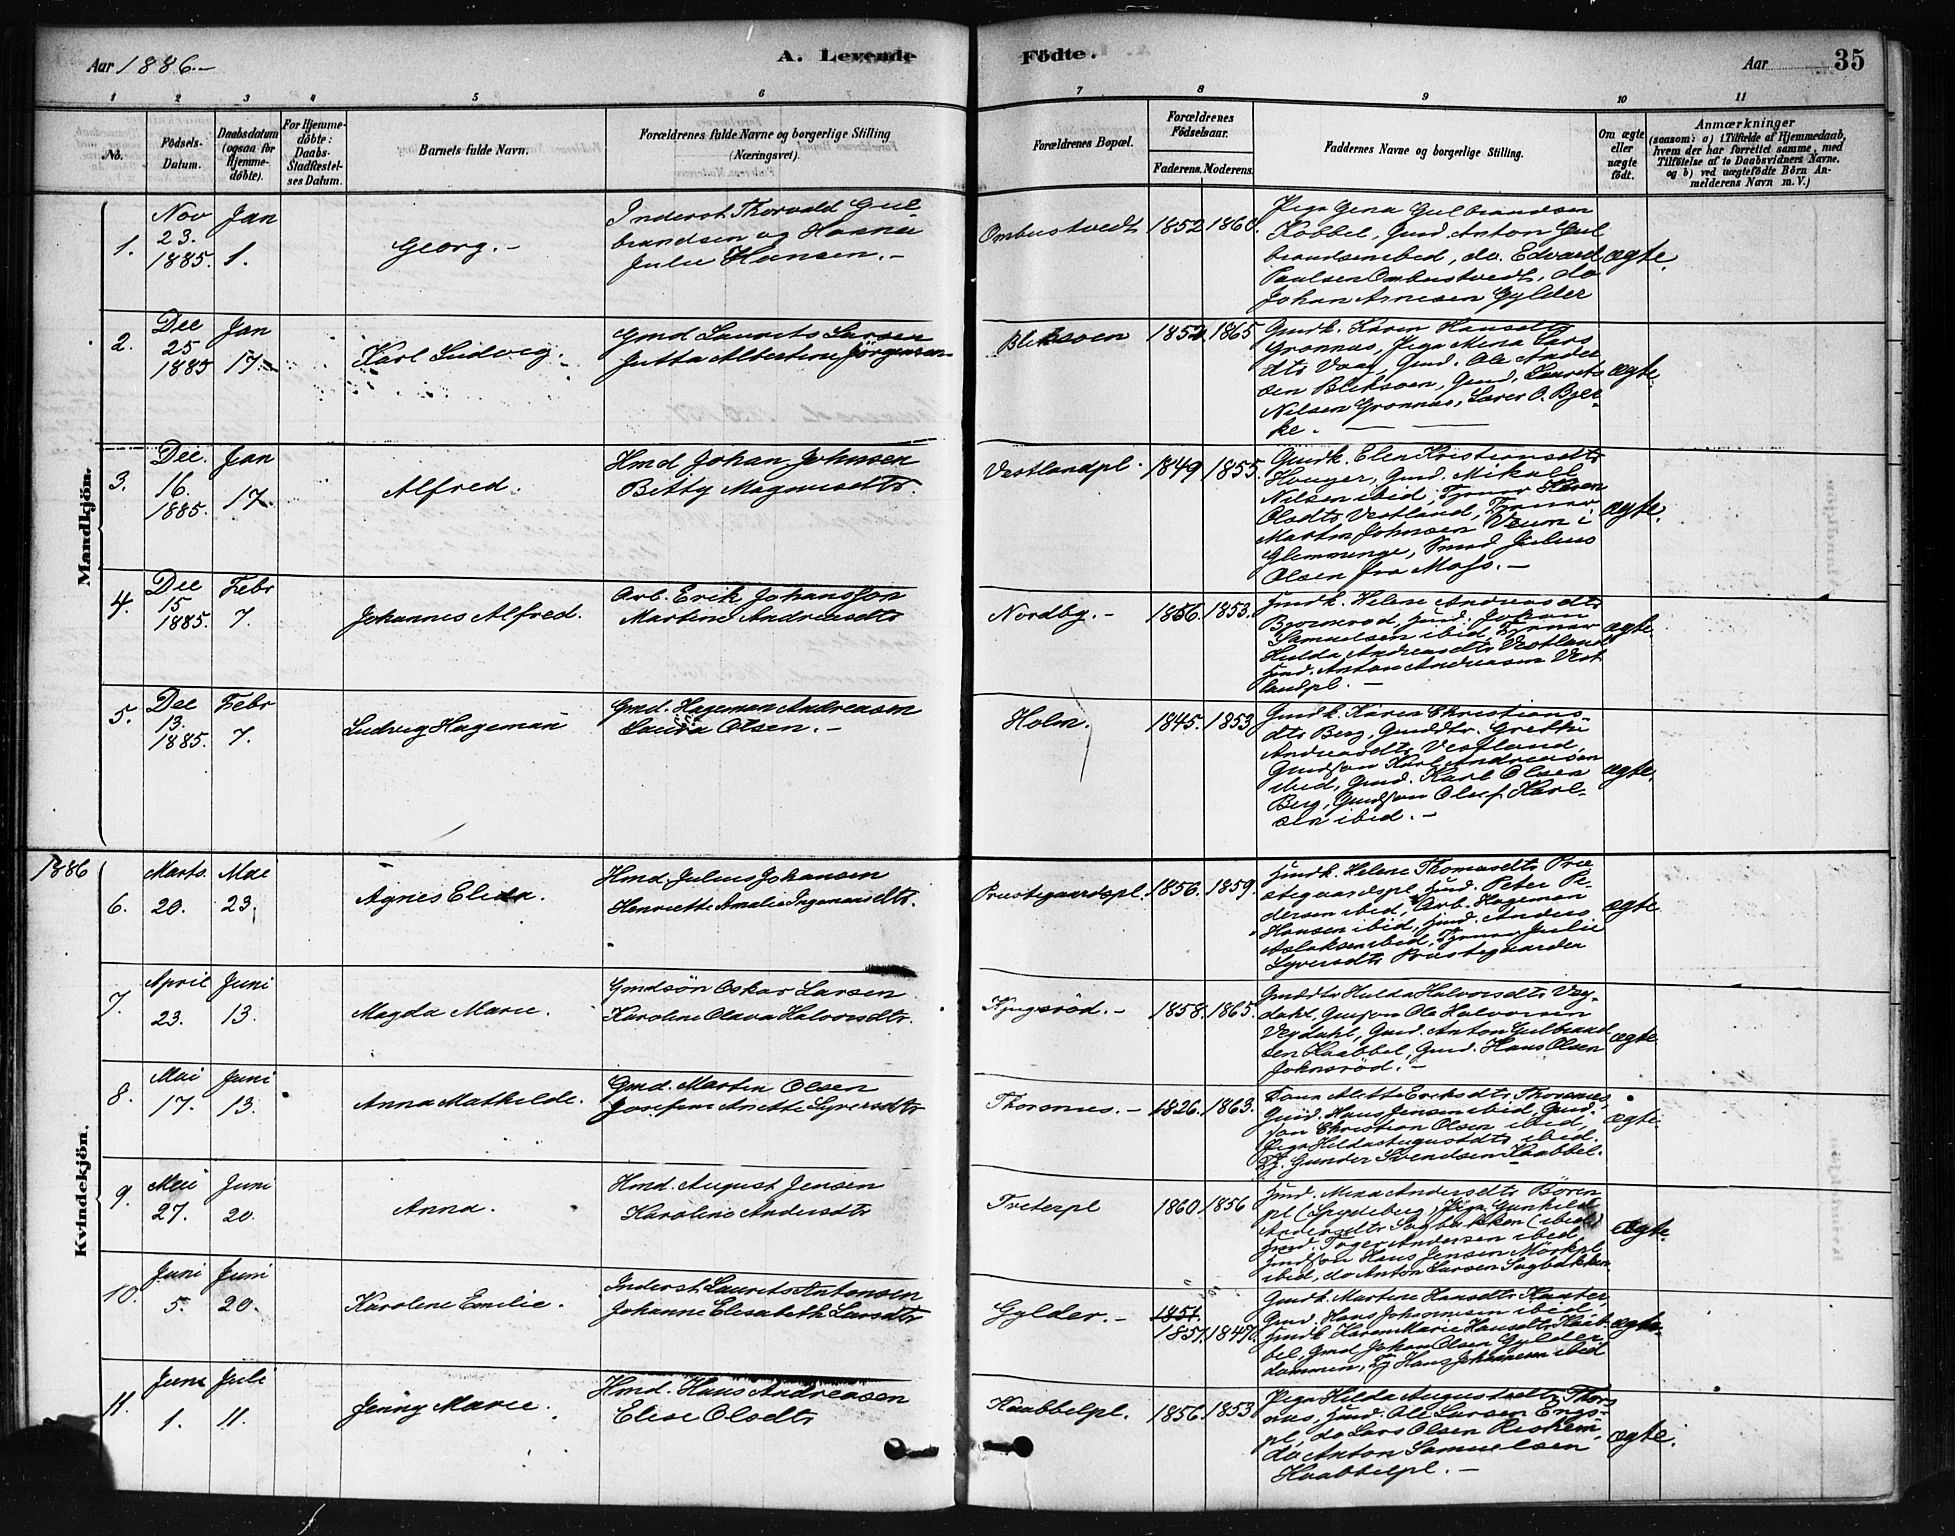 Aar 1886.-
A. Levende
Födte.
Aar
35
1 2 3 4 5 6 7 8 9 10 11
No.
Födsels-
Datum.
Daabsdatum
(ogsaa for
Hjemme-
döbte).
For Hjemme-
döbte:
Daabs-
Stadfæstel-
ses Datum.
Barnets fulde Navn.
Forældrenes fulde Navne og borgerlige Stilling
(Næringsvei).
Forældrenes Bopæl.
Forældrenes
Födselsaar.
Faderens. Moderens.
Faddernes Navne og borgerlige Stilling.
Om ægte
eller
uægte
födt.
Anmærkninger
(saasom: a) i Tilfælde af Hjemmedaab,
hvem der har forrettet samme, med
Tilföielse af to Daabsvidners Navne,
og b) ved uægtefödte Börn An-
melderens Navn m. V.)
Mandkjön.
1.
Nov
23.
1885.
Jan
1.
Georg.-
Inderst Thorvald Gul-
brandsen og Hanna
Julie Hansen.-
Ombustvedt
1852 1860.
Pige Gena Gulbrandsen
Kobbel, Gmd. Anton Gul
brandsen ibid, do. Edvard
Paulsen Ombustvedt, do
Johan Arnesen Gylder
ægte.
2.
Dec
25
1885
Jan
17
Karl Ludvig.
Gmd Laurits Larsen
Jutta Albertine Jörgensen
Bliksøen
1852 1865
Gmdk. Karen Hansdtr
Grønnæs, Pige Mena Lars
dtr Vaag, Gmd. Ole Ander
sen Bliksøen, Gmd. Laurits
Nilsen Grønnæs, Lærer O. Bjer-
ke.-
ægte
3.
Dec.
16.
1885.
Jan
17
Alfred.
Hmd Johan Johnsen
Betty Magnusdtr.
Vestlandpl.
1849 1855.
Gmdk. Elen Kristiansdtr
Houger, Gmd. Mikal
Nilsen ibid, Tjener Karen
Olsdtr Vestland, Tjener
Martin Johnsen Veum i
Glemminge, Smed Julius
Olsen fra Moss.-
ægte.
4.
Dec
15
1885.
Febr
7.
Johannes Alfred.
Arb. Erik Johansson
Martine Andreasdtr
Nordby.-
1856. 1853.
Hmdk. Helene Andreasdtr
Bjørnerød, Hmd. Johan
Samuelsen ibid, Tjener
Hulda Andreasdtr Vestland
Hmd. Anton Andreasen Vest
landpl.-
ægte.
5.
Dec
13.
1885.
Febr
7.
Ludvig Hageman
Gmd. Hageman Andreasen
Laura Olsen.-
Holm.
1845. 1853
Gmdk. Karen Christians-
dtr Berg, Gmddtr. Grethe
Andreasdtr Vestland,
Gmdsøn Karl Andreasen
ibid, Gmd. Karl Olsen
Berg, Gmdsøn Oluf Karl-
sen ibid.-
ægte.
Kvindekjön.
1886
6.
Marts.
20.
Mai
23.
Agnes Elida.
Hmd. Julius Johansen
Henriette Amalie Ingemansdtr.
Præstegaardspl.
1856. 1859.
Hmdk. Helene Thomasdtr Præ
stegaardspl, Hmd. Peter Pe-
dersen ibid, Arb. Hageman
Hansen ibid, Hmd. Anders
Aslaksen ibid, Tjener Julie
Syversdtr Præstegaarden
ægte
7.
April
23.
Juni
13.
Magda Marie.
Gmdsön Oskar Larsen
Karoline Olava Halvorsdtr.
1858. 1865.
Gmddtr Hulda Halvorsdtr Vey-
dahl, Gmdsøn Ole Halvorsen
Veydahl, Gmd. Anton Gulbrand
sen Kaabbel, Gmd. Hans Olsen
Johnsröd.-
ægte
8.
Mai
17.
Juni
13.
Anna Mathilde.
Gmd. Martin Olsen
Josefine Anette Syversdtr
Thorsnes.-
1826. 1863.
Alette Eriksdtr Thorsnes,
Gmd. Hans Jensen ibid, Gmd.
søn Christian Olsen ibid,
Pige Hilda Augustdtr ibid.
Gunder Svendsen Kaabbel.
ægte.
9
Mai
27.
Juni
20.
Anna.
Hmd. August Jensen
Karoline Andersdtr
Tveterpl
1860 1856
Hmd. Mina Andersdtr Bören
pl (Spydeberg), Pige Gunhild
Andersdtr Sagbakken (ibid)
Hmd. Tøger Andersen ibid,
Hmdsøn Hans Jensen Mörkpl
ibid, do Anton Larsen Sagbakken
ægte.
10.
Juni
5.
Juni
20.
Karolene Emilie.
Inderst Laurits Antonsen
Johanne Elisabeth Larsdtr
Gylder.-
1851.
1851. 1847.
Gmdk. Martene Hansdtr Kaater,
Gmd. Hans Johannesen ibid,
Gmdk Karen Marie Hansdtr Kaab-
bel, Gmd Johan Olsen Gylder
dammen, Hans Johannesen ibid
ægte.
11.
Juni
1.
Juli
11.
Jenny Marie.
Hmd. Hans Andreasen
Elise Olsdtr
Kaabbelpl.
1856. 1853
Pige Hilda Augustsdtr Thors
næs, Hmd. Ole Larsen Engs-
pl, do Lars Olsen
do Anton Samuelsen
Kaabbelpl.-
ægte.